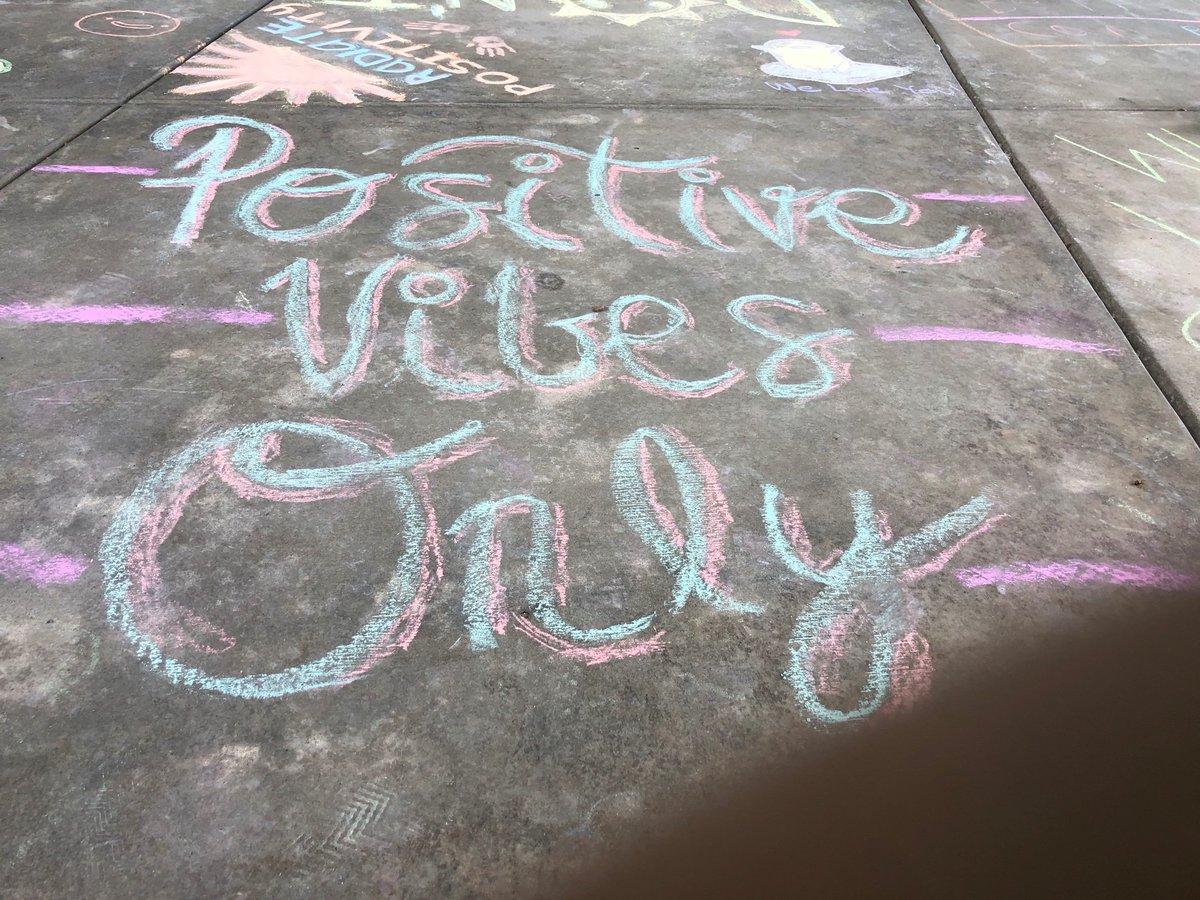 RADIATE
POSITIVITY
POSITIVITY
We Love You!
Positive
Vibes
Only